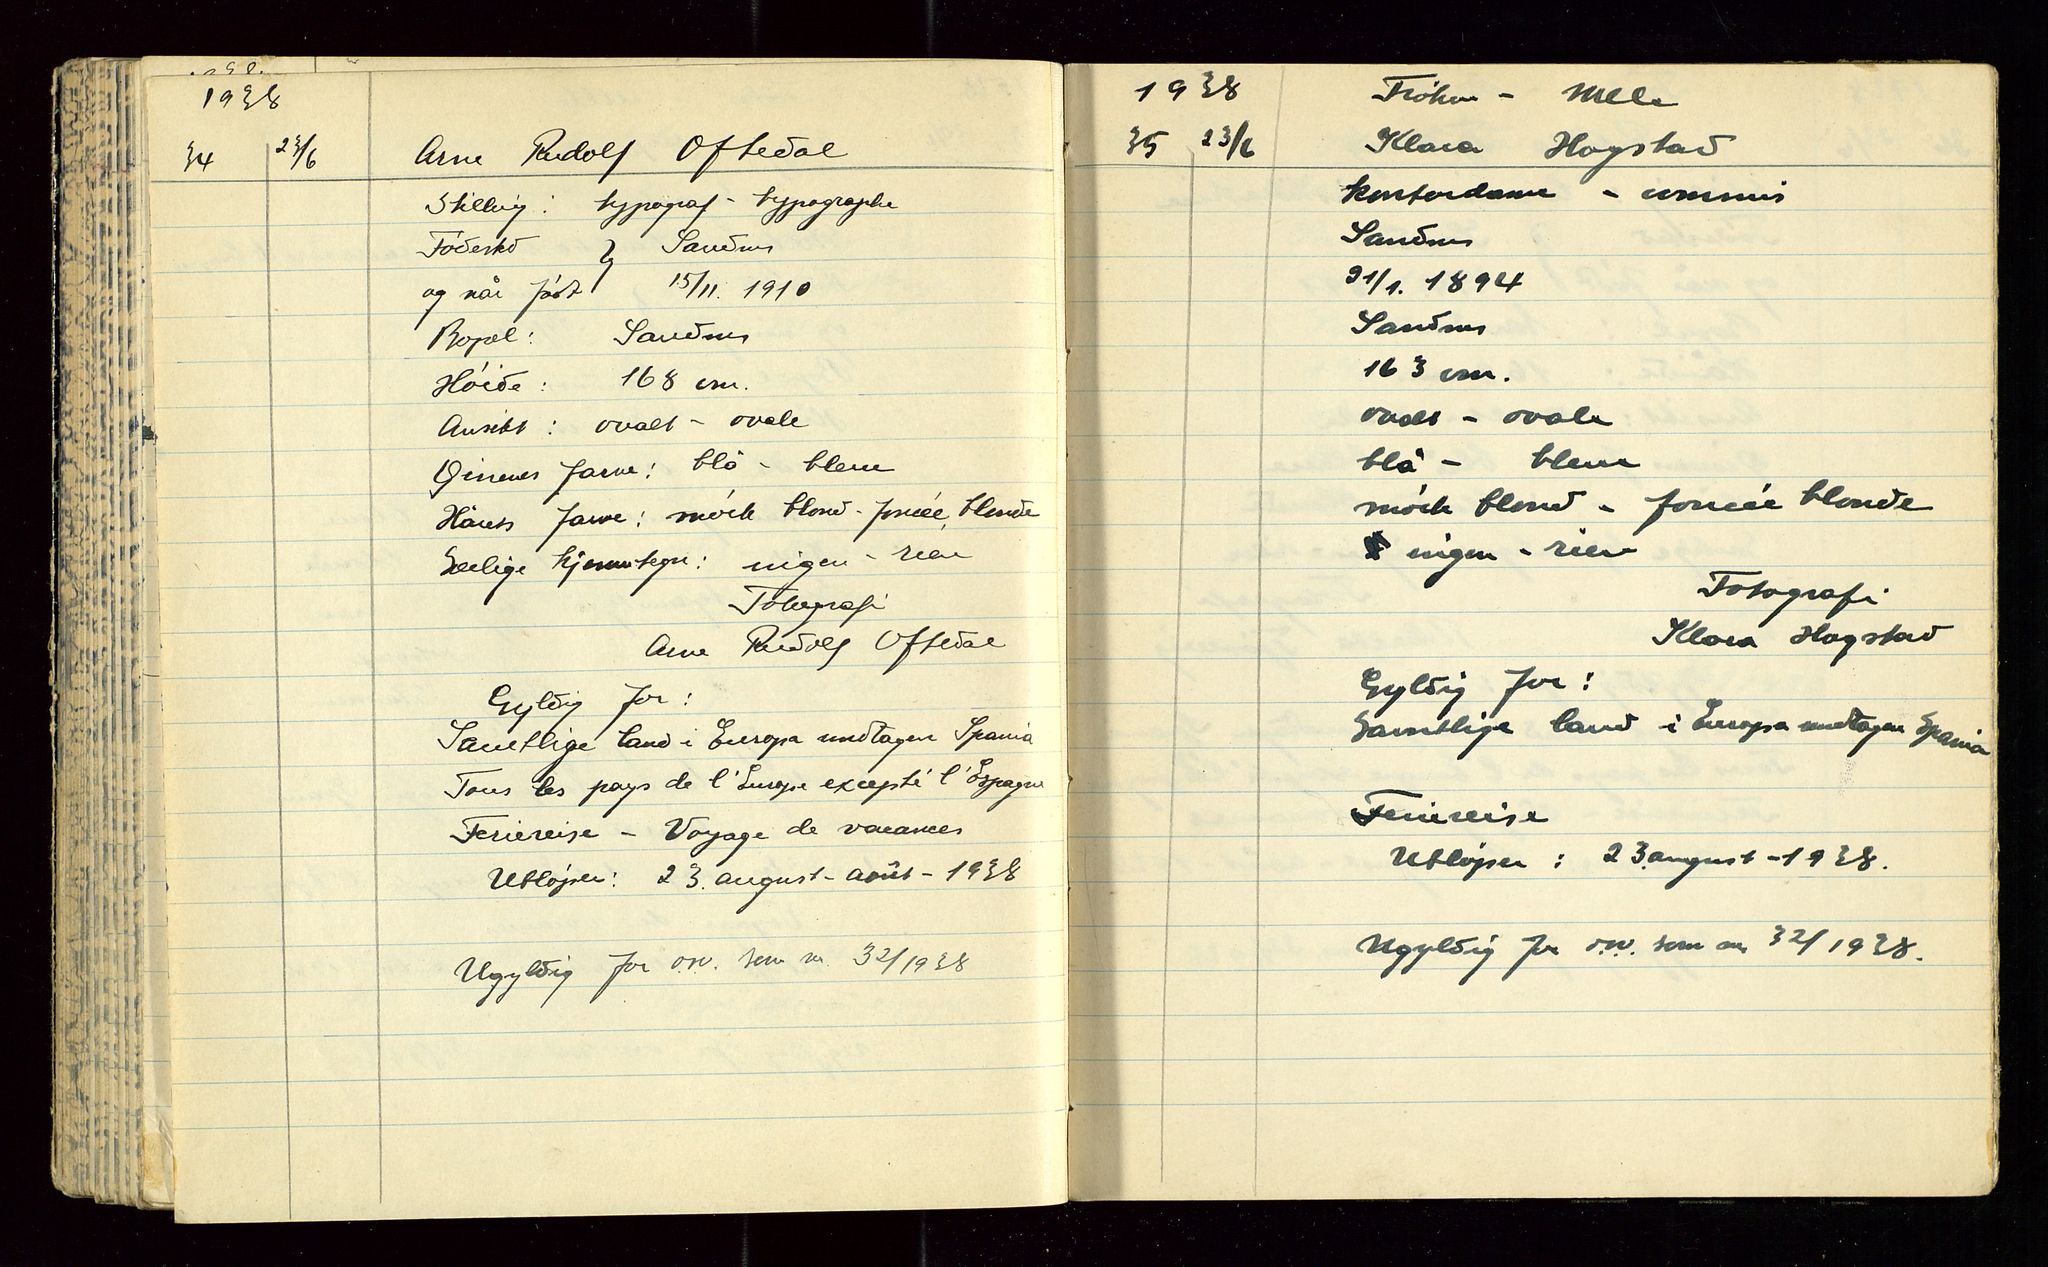 1938
34 23/6 Arne Rudolf Oftedal
Stilling: typograf - typographe
Fødested } Sandnes
og når født 15/11. 1910
Bopel: Sandnes
Höide: 168 cm.
Ansikt: ovalt - ovale
Öinenes farve: blå - bleue
Hårets farve: mörk blond - foncée blonde
Særlige kjennetegn: ingen - rien
Fotografi
Arne Rudolf Oftedal
Gyldig for:
Samtlige land i Europa undtagen Spania
Tous les pays de l'Europe excepté l'Espagne
Feriereise - Voyage de vacances
Utløper: 23. august - août - 1938
Ugyldig for o.s.v. som nr. 32/1938
1938 Frøken - Mlle
35 23/6 Klara Hogstad
kontordame - commis
Sandnes
21/1. 1894
Sandnes
163 cm.
ovalt - ovale
blå - bleue
mörk blond - foncée blonde
ingen - rien
Fotografi
Klara Hogstad
Gyldig for:
Samtlige land i Europa undtagen Spania
Feriereise
Utløper: 23. august - 1938.
Ugyldig for o.s.v. som nr 32/1938.